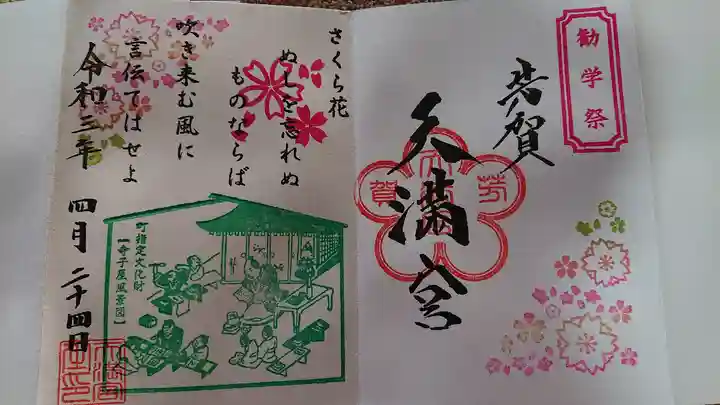 勧学祭
芳賀
天満宮
さくら花
ぬしを忘れぬ
ものならば
吹き来む風に
言伝てはせよ
令和三年 四月 二十四日
町指定文化財
【寺子屋風景図】